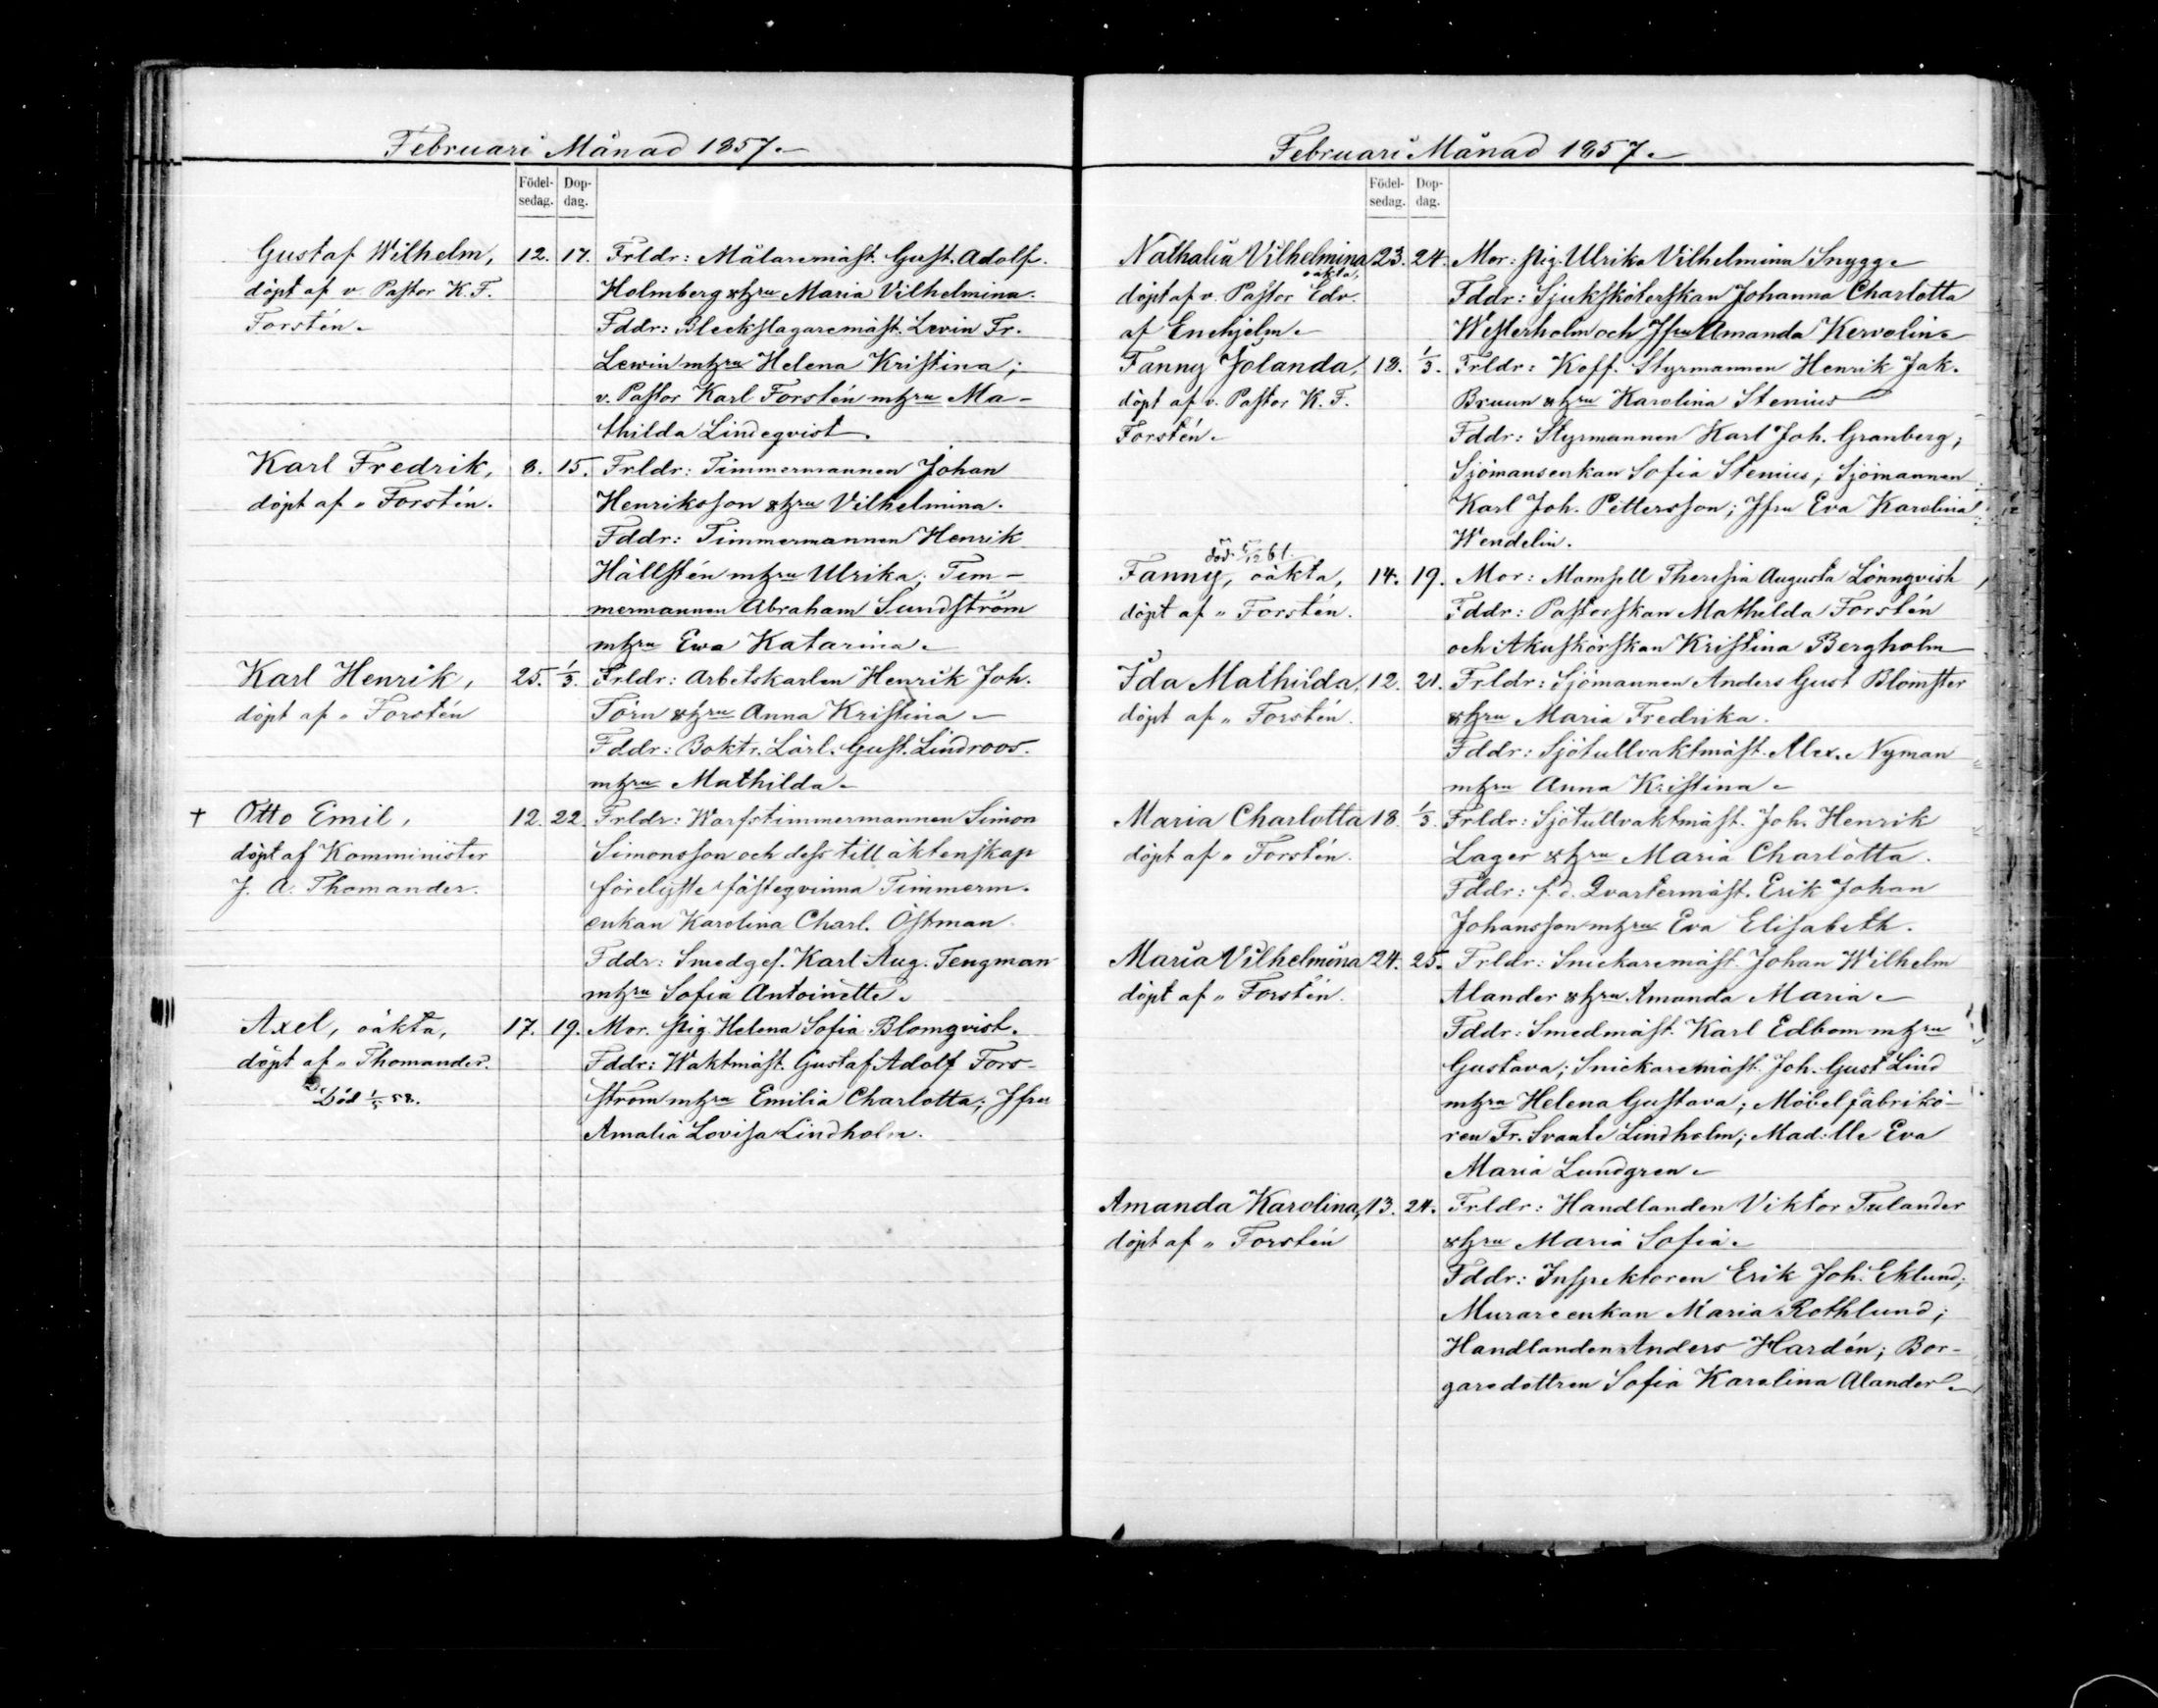 Februari Månad 1857.
Födel-
sedag.
Dop-
dag.
Gustaf Wilhelm, 12. 17. Frldr: Målaremäst. Gust. Adolf
döpt af v. Pastor K. F. Holmberg o h:ru Maria Vilhelmina.
Forstén. Fddr: Bleckslagaremäst. Levin Fr.
Lewin m h:ru Helena Kristina;
v. Pastor Karl Forstén m h:ru Ma-
thilda Lindeqvist.
Karl Fredrik, 8. 15. Frldr: Timmermannen Johan
döpt af " Forstén. Henriksson o h:ru Vilhelmina.
Fddr: Timmermannen Henrik
Hällstén m h:ru Ulrika; Tim-
mermannen Abraham Sundström
m h:ru Ewa Katarina.
Karl Henrik, 25. 1/3. Frldr: Arbetskarlen Henrik Joh.
döpt af " Forstén Törn o h:ru Anna Kristina.
Fddr: Boktr. Lärl. Gust. Lindroos.
m h:ru Mathilda.
† Otto Emil, 12. 22. Frldr: Warfstimmermannen Simon
döpt af Komminister Simonsson och dess till äktenskap
J. A. Thomander. förelyste fästeqvinna Timmerm.
enkan Karolina Charl. Östman
Fddr: Smedges. Karl Aug. Tengman
m h:ru Sofia Antoinette.
Axel, oäkta, 17. 19. Mor. pig. Helena Sofia Blomqvist.
döpt af " Thomander. Fddr: Waktmäst. Gustaf Adolf Fors-
Död 1/5 58. ström m h:ru Emilia Charlotta; Jfru
Amalia Lovisa Lindholm.
Februari Månad 1857.
Födel-
sedag.
Dop-
dag.
Nathalia Vilhelmina 23. 24. Mor: pig. Ulrika Vilhelmina Snygg.
oäkta,
döpt af v. Pastor Edv. Fddr: Sjuksköterskan Johanna Charlotta
af Enehjelm. Westerholm och Jfru Amanda Kervolin.
Fanny Jolanda, 18. 1/3. Frldr: Koff. Styrmannen Henrik Jak.
döpt af v. Pastor K. F. Bruun o h:ru Karolina Stenius
Forstén. Fddr: Styrmannen Karl Joh. Granberg;
Sjömansenkan Sofia Stenius; Sjömannen
Karl Joh. Pettersson; Jfru Eva Karolina
Wendelin.
död 5/12 61.
Fanny, oäkta, 14. 19. Mor: Mamsell Theresia Augusta Lönnqvist
döpt af " Forstén. Fddr: Pastorskan Mathilda Forstén
och Akuskörskan Kristina Bergholm
Ida Mathilda, 12. 21. Frldr: Sjömannen Anders Gust Blomster
döpt af " Forstén. o h:ru Maria Fredrika.
Fddr: Sjötullvaktmäst. Alex. Nyman
m h:ru Anna Kristina.
Maria Charlotta 18. 1/3. Frldr: Sjötullvaktmäst. Joh. Henrik
döpt af " Forstén. Lager o h:ru Maria Charlotta.
Fddr: f. d. Qvartermäst. Erik Johan
Johansson m h:ru Eva Elisabeth.
Maria Vilhelmina 24. 25. Frldr: Snickaremäst. Johan Wilhelm
döpt af " Forstén. Alander o h:ru Amanda Maria.
Fddr: Smedmäst. Karl Edbom m h:ru
Gustava; Snickaremäst. Joh. Gust Lind
m h:ru Helena Gustava; Möbelfabrikö-
ren Fr. Svante Lindholm; Mad:lle Eva
Maria Lundgren.
Amanda Karolina, 13. 24. Frldr: Handlanden Viktor Tulander
döpt af " Forstén o h:ru Maria Sofia.
Fddr: Inspektoren Erik Joh. Eklund;
Murareenkan Maria Rothlund;
Handlanden Anders Hardén; Bor-
garedottren Sofia Karolina Alander.